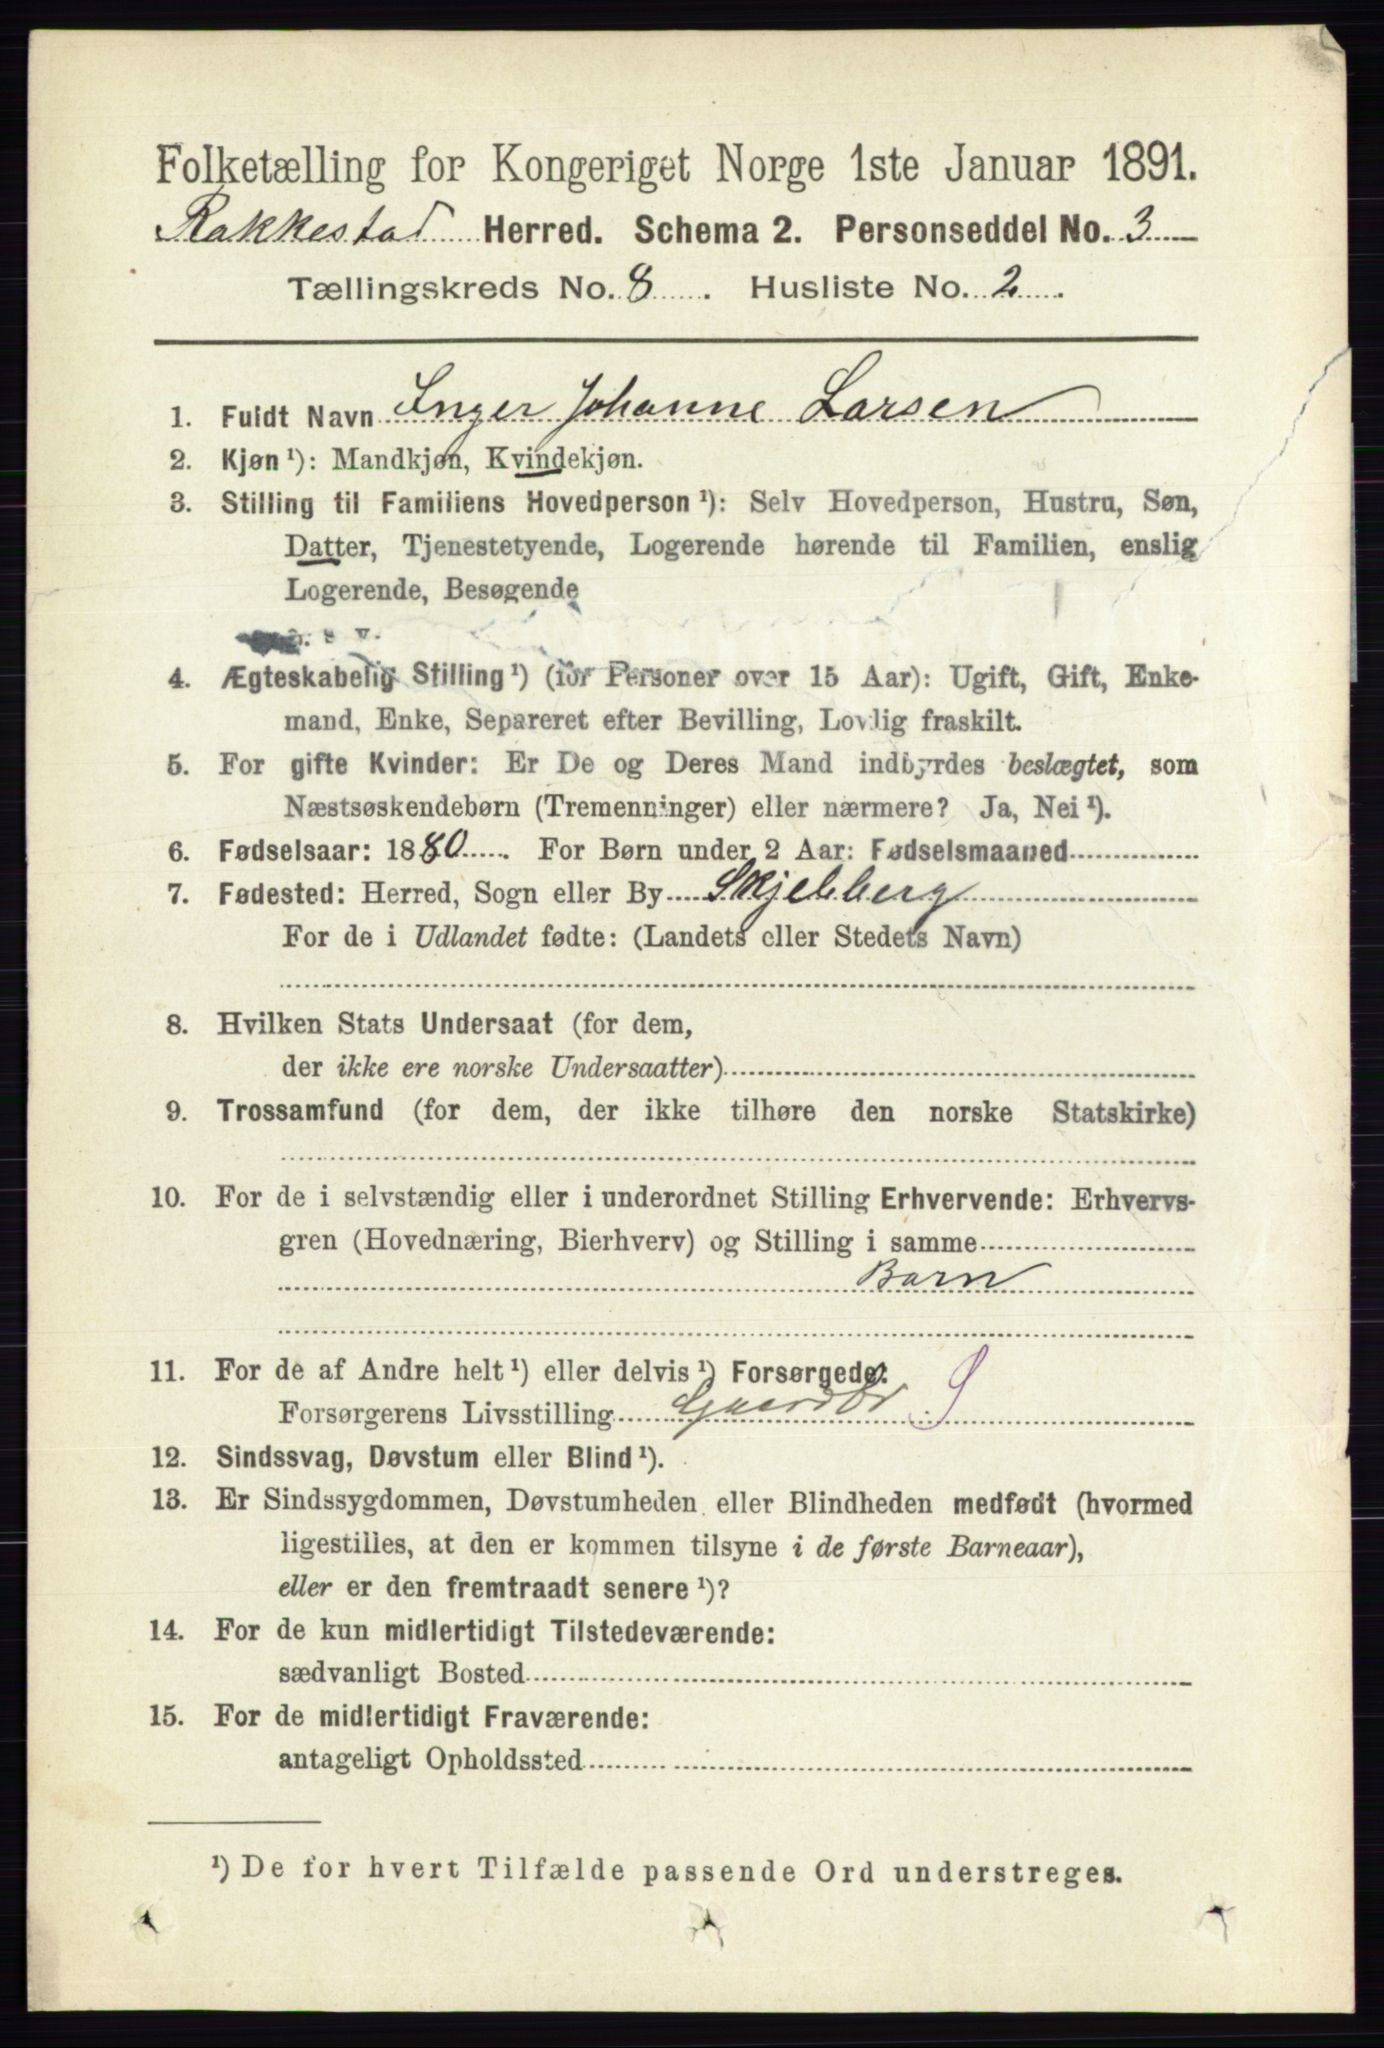 Folketælling for Kongeriget Norge 1ste Januar 1891.
Rakkestad Herred. Schema 2. Personseddel No. 3
Tællingskreds No. 8. Husliste No. 2.
1. Fuldt Navn Inger Johanne Larsen
2. Kjøn ¹): Mandkjøn, Kvindekjøn.
3. Stilling til Familiens Hovedperson ¹): Selv Hovedperson, Hustru, Søn,
Datter, Tjenestetyende, Logerende hørende til Familien, enslig
Logerende, Besøgende
o. s. v.
4. Ægteskabelig Stilling ¹) (for Personer over 15 Aar): Ugift, Gift, Enke-
mand, Enke, Separeret efter Bevilling, Lovlig fraskilt.
5. For gifte Kvinder: Er De og Deres Mand indbyrdes beslægtet, som
Næstsøskendebørn (Tremenninger) eller nærmere? Ja, Nei ¹).
6. Fødselsaar: 1880. For Børn under 2 Aar: Fødselsmaaned
7. Fødested: Herred, Sogn eller By Skjebberg
For de i Udlandet fødte: (Landets eller Stedets Navn)
8. Hvilken Stats Undersaat (for dem,
der ikke ere norske Undersaatter)
9. Trossamfund (for dem, der ikke tilhøre den norske Statskirke)
10. For de i selvstændig eller i underordnet Stilling Erhvervende: Erhvervs-
gren (Hovednæring, Bierhverv) og Stilling i samme
Barn
11. For de af Andre helt ¹) eller delvis ¹) Forsørgede:
Forsørgerens Livsstilling Gaardbr. S
12. Sindssvag, Døvstum eller Blind ¹).
13. Er Sindssygdommen, Døvstumheden eller Blindheden medfødt (hvormed
ligestilles, at den er kommen tilsyne i de første Barneaar),
eller er den fremtraadt senere ¹)?
14. For de kun midlertidigt Tilstedeværende:
sædvanligt Bosted
15. For de midlertidigt Fraværende:
antageligt Opholdssted
¹) De for hvert Tilfælde passende Ord understreges.